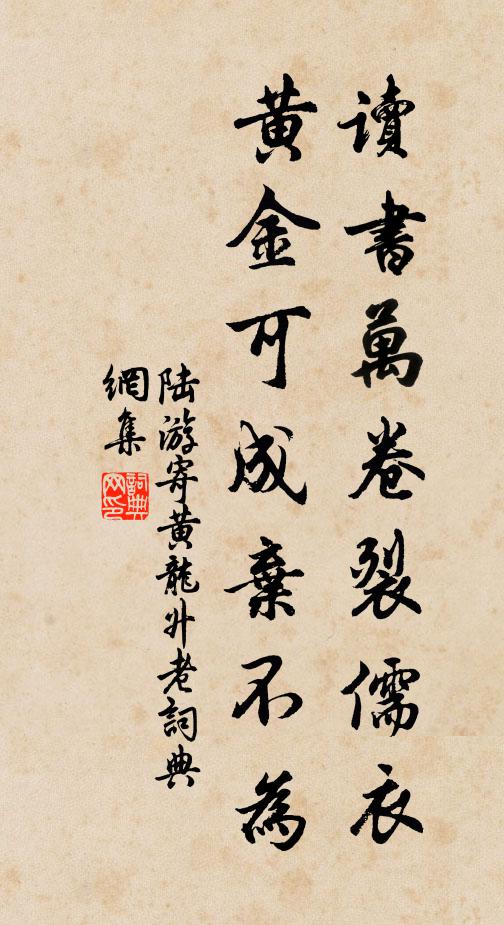 讀書萬卷裂儒衣
黃金可成棄不為
陸游寄黃龍升老詞典
網集
詞典
网印